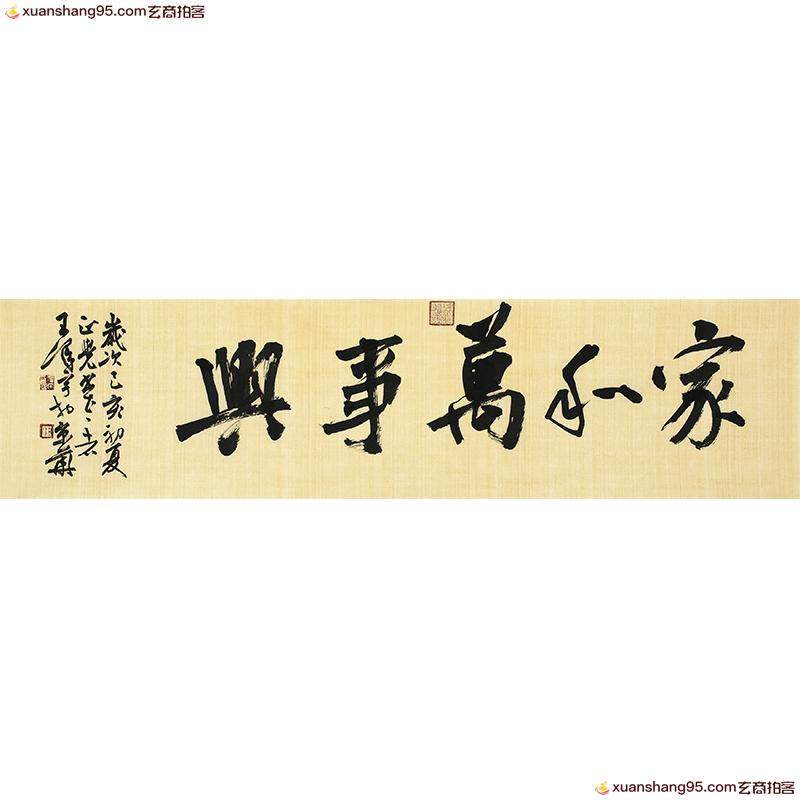 xuanshang95.com玄商拍客
家和萬事興
歲次己亥初夏
xuanshang95.com玄商拍客